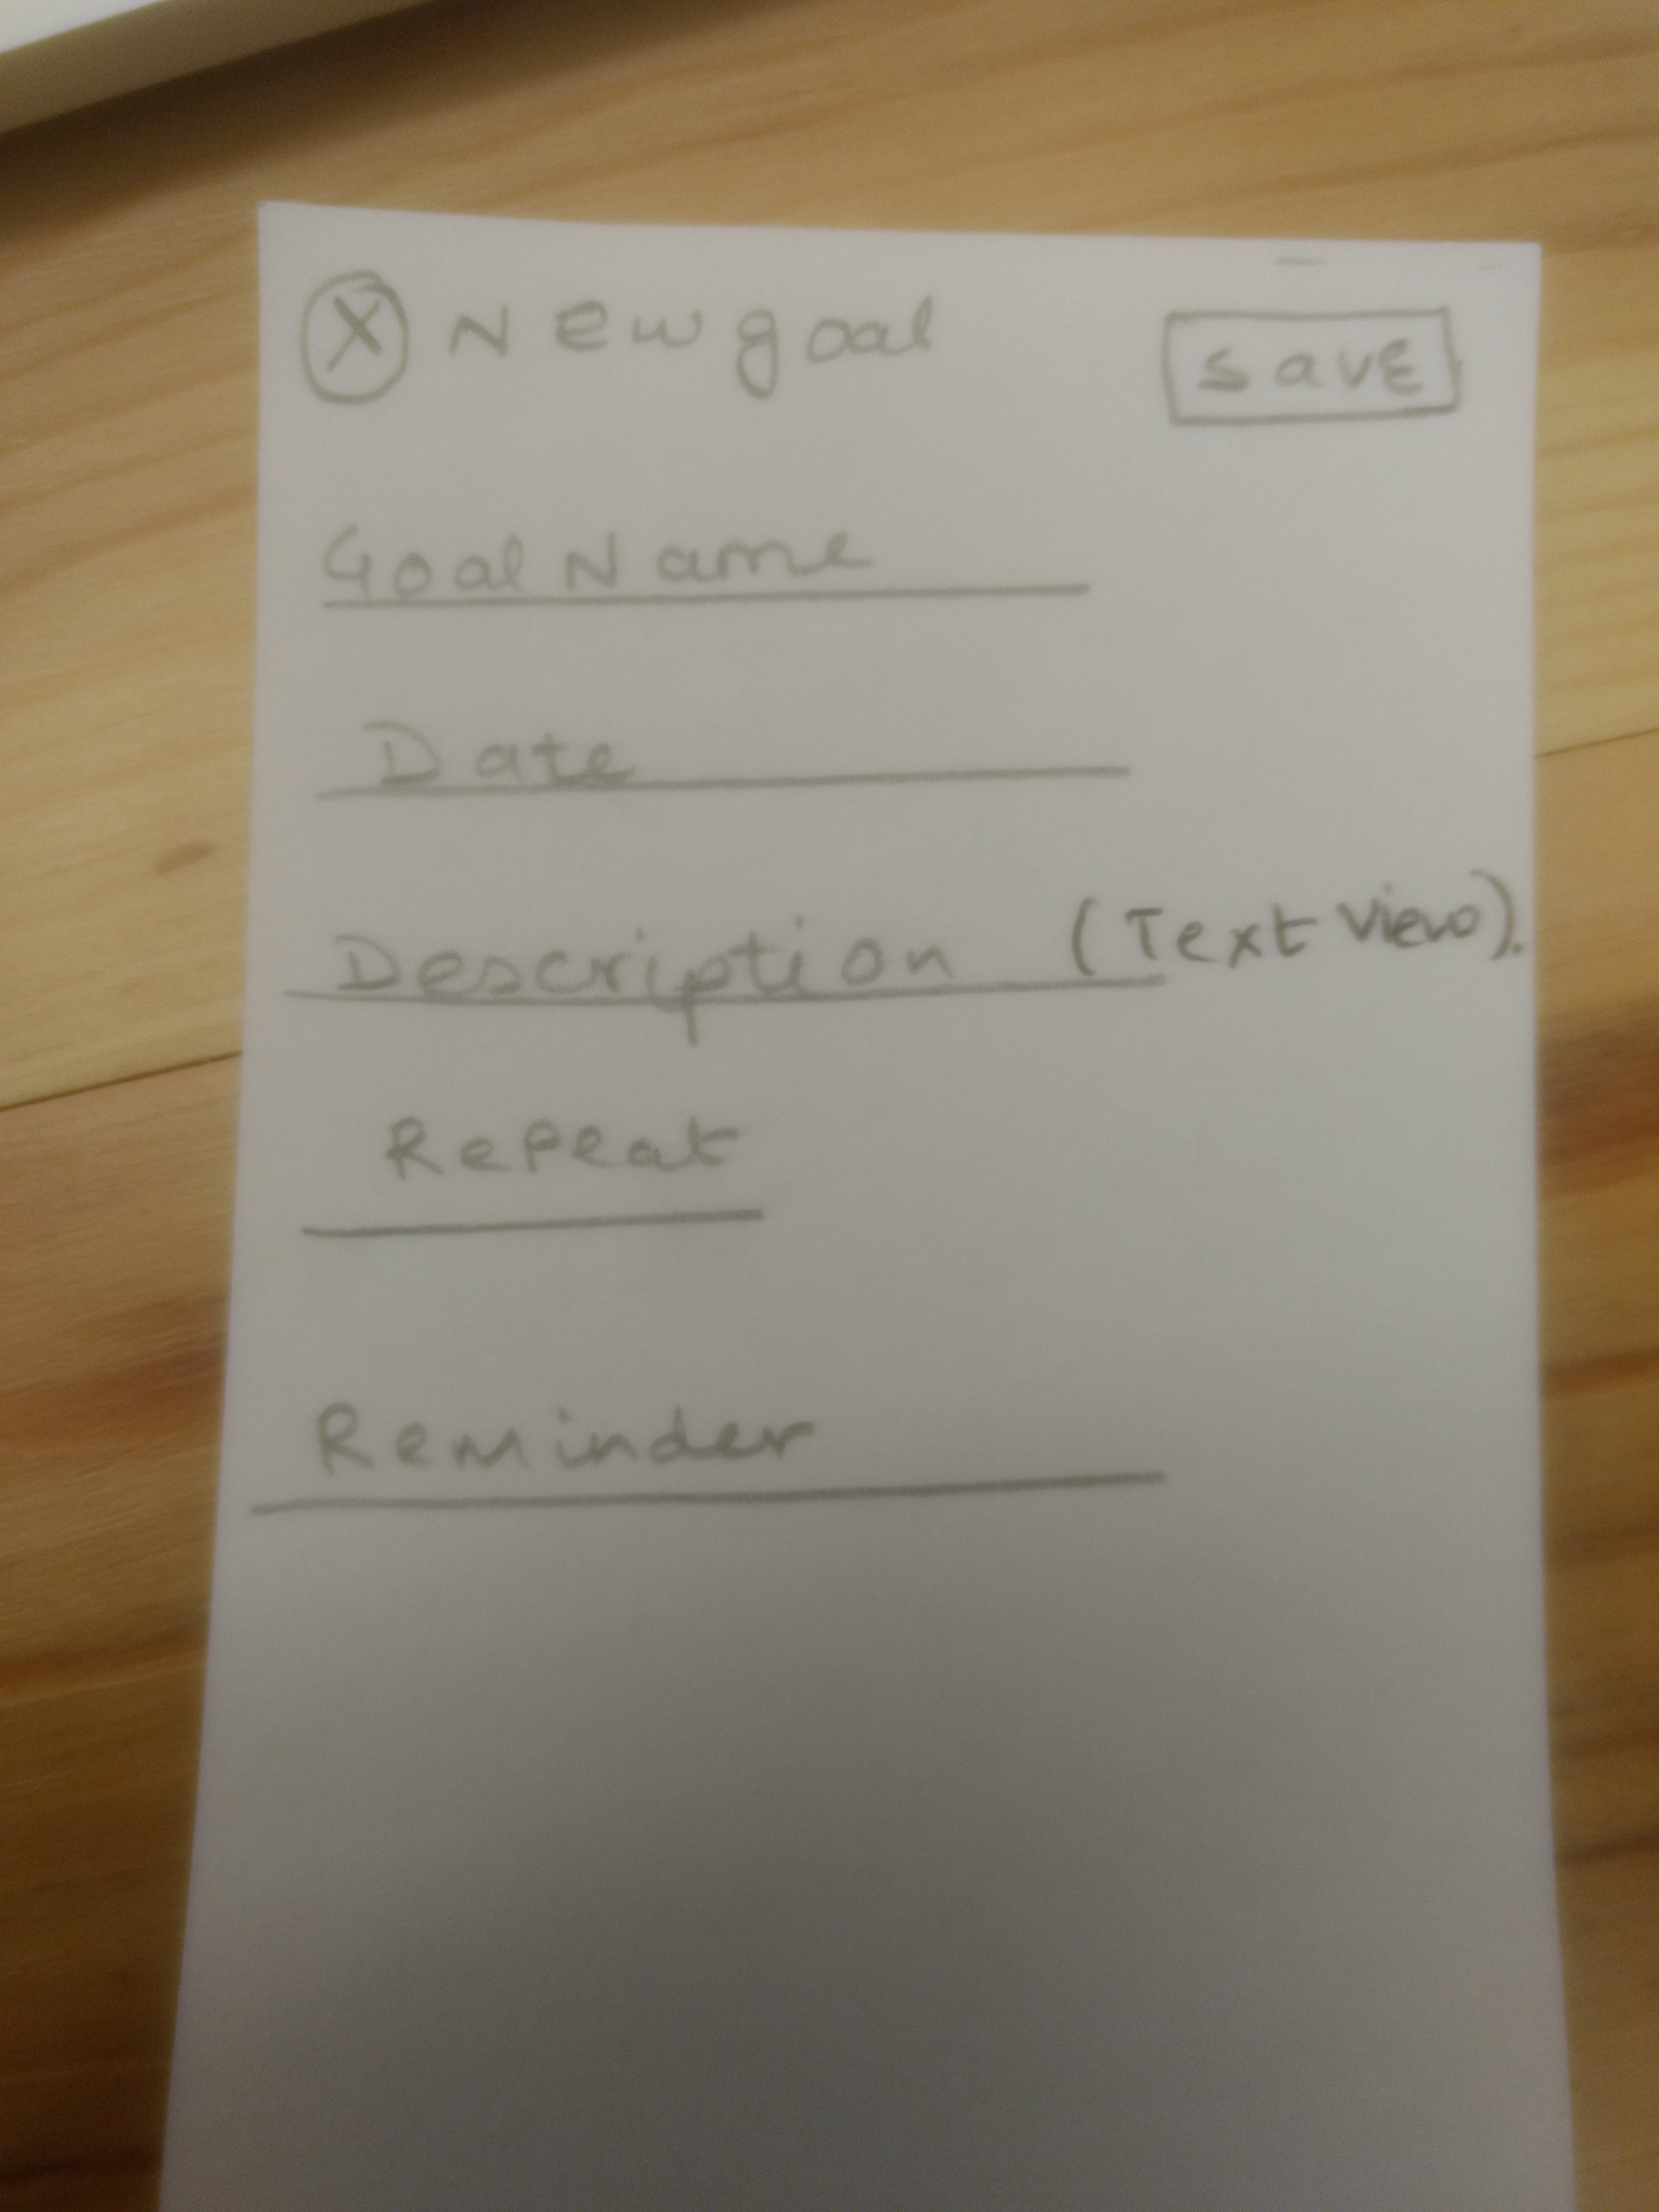 X New goal save
Goal Name
Date
Description (Text View).
Repeat
Reminder